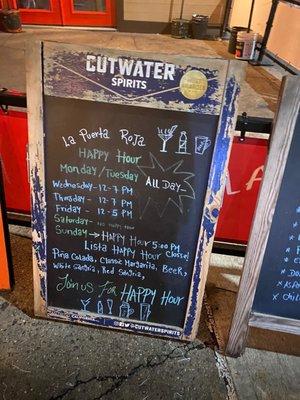 CUTWATER
SPIRITS
La Puerta Roja
Happy Hour
Monday/Tuesday
All Day
Wednesday - 12-7 PM
Thursday - 12-7 PM
Friday - 12-5 PM
Saturday - No Happy Hour
Sunday → Happy Hour 5:00 PM
Lista Happy Hour Close!
Pina Colada, Classic Margarita, Beer,
White Sangria, Red Sangria.
Join us For Happy Hour
@CUTWATERSPIRITS